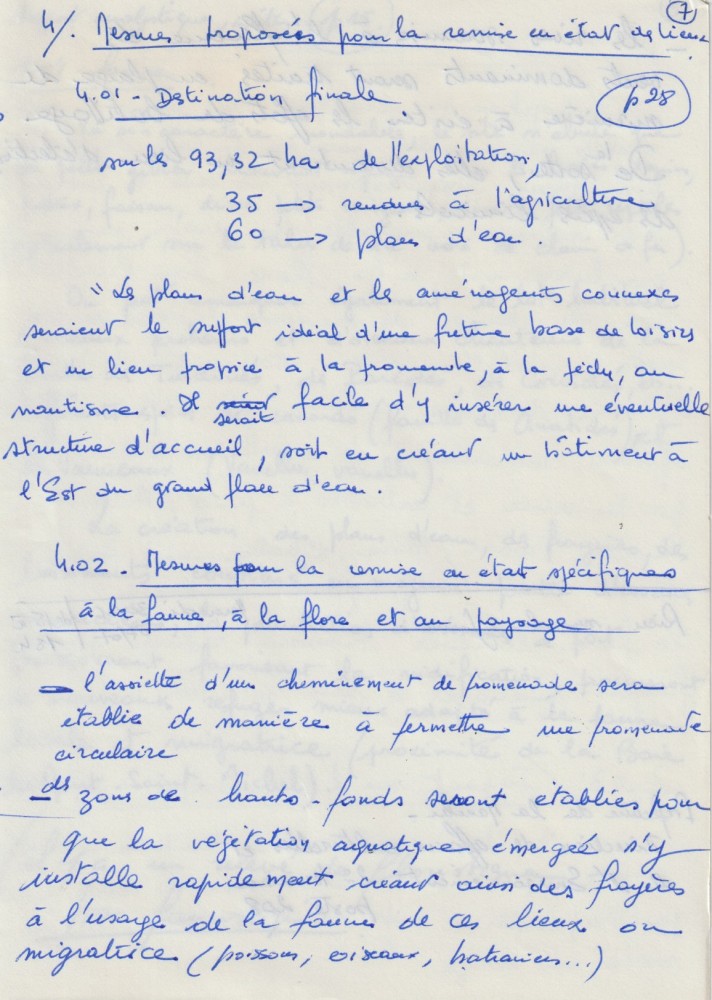 7
4/. Mesures proposées pour la remise en état des lieux
4.01 - Destination finale.
p28
sur les 93,32 ha de l'exploitation,
35 → rendues à l'agriculture
60 → plans d'eau.
"Les plans d'eau et les aménagents connexes
seraient le support idéal d'une future base de loisirs
et un lieu propice à la promenade, à la pêche, au
nautisme. Il serait facile d'y insérer une éventuelle
structure d'accueil, soit en créant un bâtiment à
l'Est du grand plan d'eau.
4.02. Mesures pour la remise en état spécifiques
à la faune, à la flore et au paysage
- l'assiette d'un cheminement de promenade sera
établie de manière à permettre une promenade
circulaire
- ds zones de hauts-fonds seront établies pour
que la végétation aquatique émergée s'y
installe rapidement créant ainsi des frayères
à l'usage de la faune de ces lieux ou
migratrice (poissons, oiseaux, batraciens...)